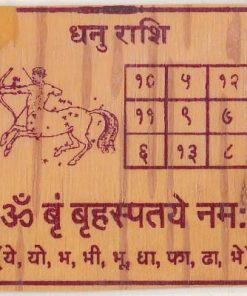 धनु राशि
१० ५ १२
११ ९ ७
६ १३ ८
ॐ बृं बृहस्पतये नम:
(ये, यो, भ, भी, भू, धा, फा, ढा, भे)